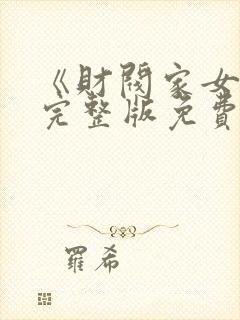 《財閥家女
完整版免費
羅希